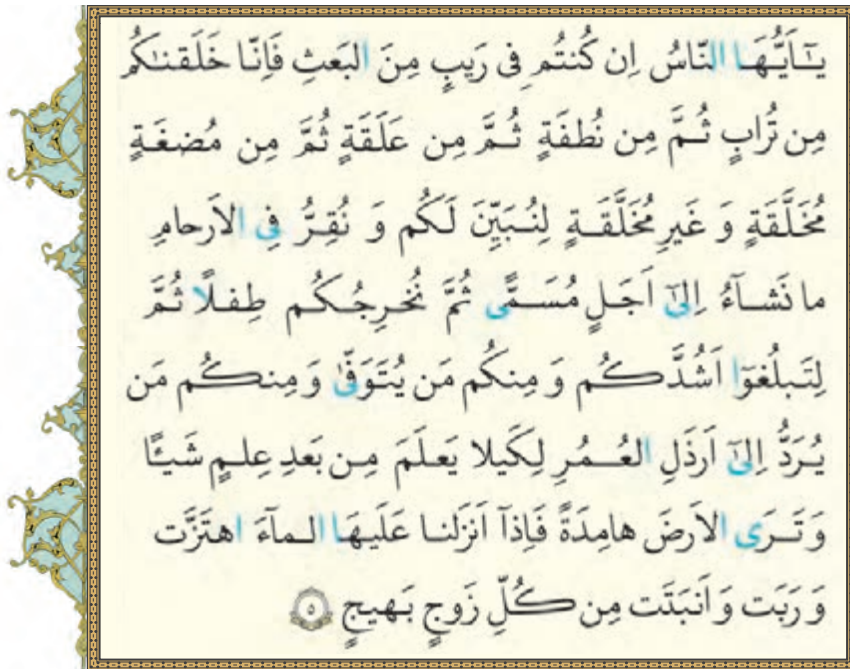 يـٰٓاَيُّهَـا النّاسُ اِن كُنتُم فى رَيبٍ مِنَ البَعثِ فَاِنّا خَلَقنـٰكُم
مِن تُرابٍ ثُـمَّ مِن نُطفَةٍ ثُـمَّ مِن عَلَقَةٍ ثُمَّ مِن مُضغَةٍ
مُخَلَّقَةٍ وَ غَيرِ مُخَلَّقَـةٍ لِنُـبَيِّنَ لَكُم وَ نُقِرُّ فِى الاَرحامِ
ما نَشـآءُ اِلىٰٓ اَجَـلٍ مُسَـمًّى ثُمَّ نُخـرِجُـكُـم طِفـلًا ثُـمَّ
لِتَـبلُغوٓا اَشُدَّكُـم وَ مِنكُم مَن يُتَوَفّىٰ وَ مِنكُـم مَن
يُـرَدُّ اِلىٰٓ اَرذَلِ العُـمُـرِ لِكَيلا يَعـلَمَ مِـن بَعدِ عِلـمٍ شَيـًٔا
وَ تَـرَى الاَرضَ هامِدَةً فَاِذآ اَنزَلنـا عَلَيهَـا الـمآءَ اهتَزَّت
وَ رَبَت وَ اَنبَتَت مِن كُلِّ زَوجٍ بَهيجٍ ٥